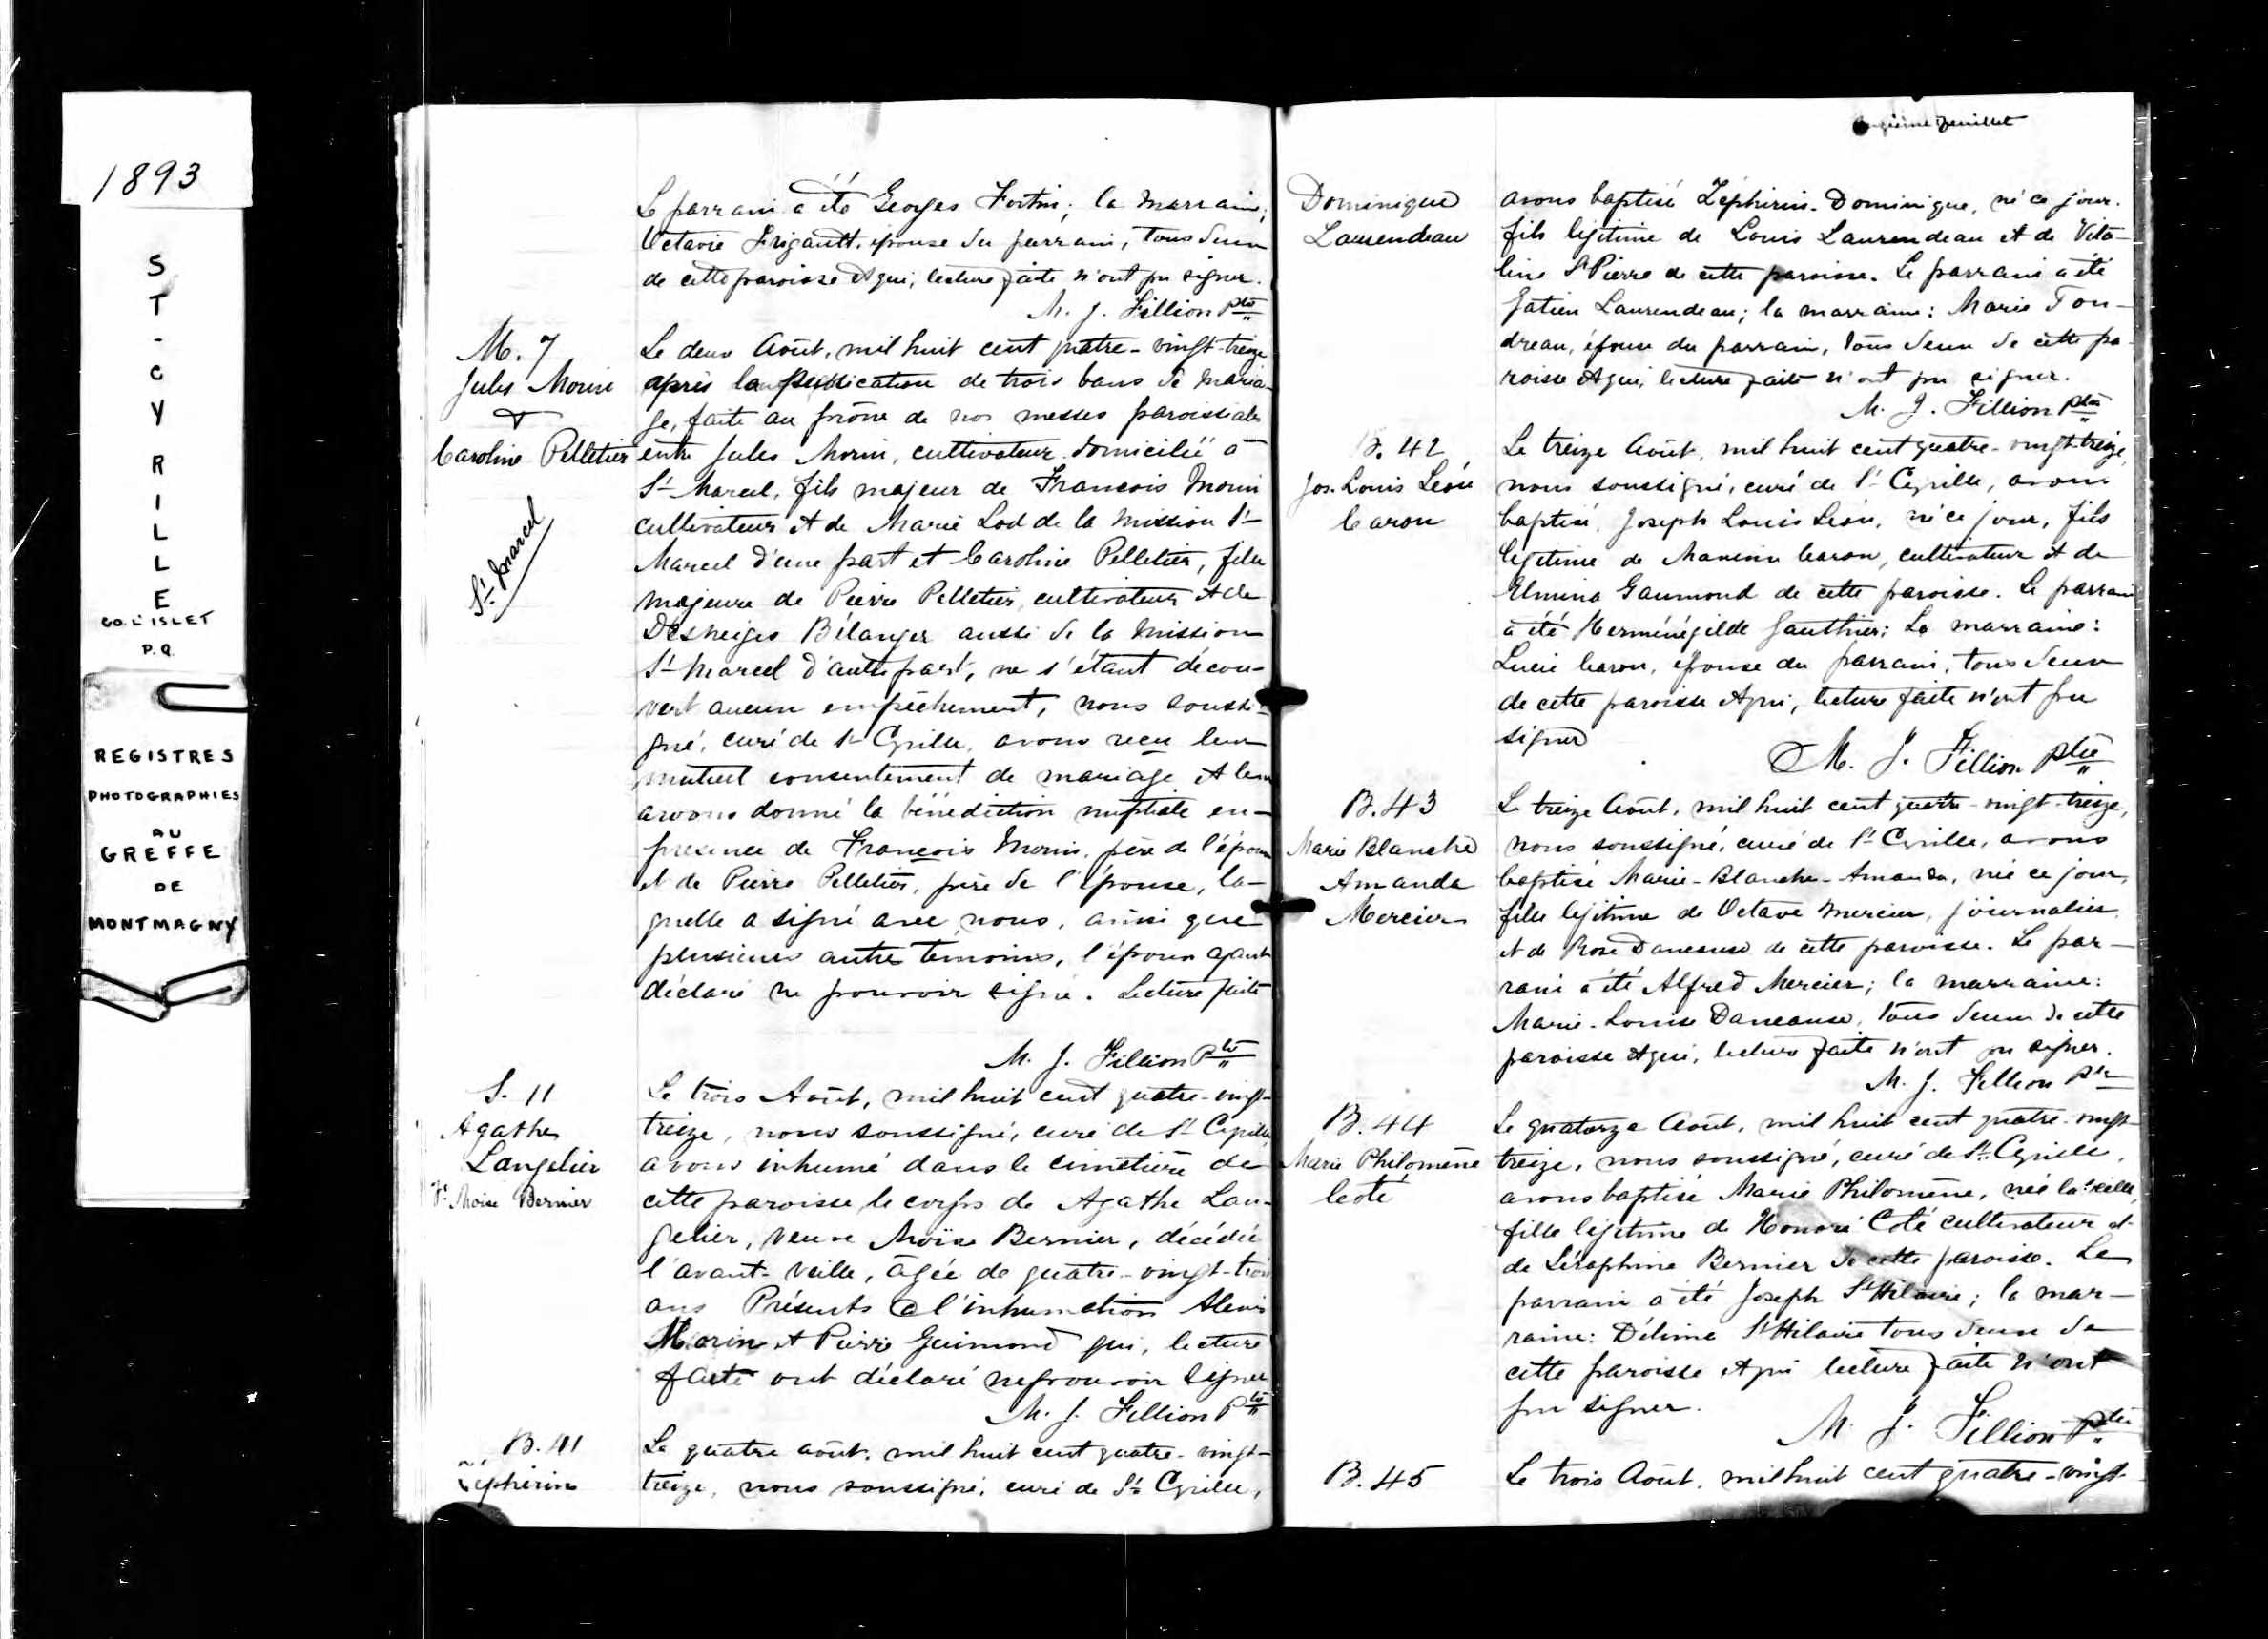 1893
ST-CYRILLE
CO. L'ISLET
P.Q.
REGISTRES
PHOTOGRAPHIES
AU
GREFFE
DE
MONTMAGNY
Le parrain a été Georges Fortin; la marraine;
Octavie Frigault, épouse du parrain, tous deux
de cette paroisse et qui, lecture faite n'ont pu signer.
M. J. Fillion Ptre
M. 7
Jules Morin
&
Caroline Pelletier
St Marcel
Le deux Août, mil huit cent quatre-vingt-treize
après la publication de trois bans de maria-
ge, faite au prône de nos messes paroissiales
entre Jules Morin, cultivateur domicilié à
St Marcel, fils majeur de Francois Morin
cultivateur et de Marie Lod de la mission St
Marcel d'une part et Caroline Pelletier, fille
majeure de Pierre Pelletier, cultivateur et de
Desneiges Bélanger aussi de la mission
St Marcel d'autre part, ne s'étant décou-
vert aucun empêchement, nous soussi-
gné, curé de St Cyrille, avons reçu leur
mutuel consentement de mariage et leur
avons donné la bénédiction nuptiale en
presence de François Morin, père de l'époux
et de Pierre Pelletier, père de l'épouse, la-
quelle a signé avec nous, ainsi que
plusieurs autres temoins, l'époux ayant
déclaré ne pouvoir signé. Lecture faite
M. J. Fillion Ptre
S. 11
Agathe
Langelier
Ve Moise Bernier
Le trois Août, mil huit cent quatre-vingt-
treize, nous soussigné, curé de St Cyrille,
avons inhumé dans le cimetière de
cette paroisse le corps de Agathe Lan-
gelier, veuve Moïse Bernier, décédée
l'avant-veille, âgée de quatre-vingt-trois
ans Présents à l'inhumation Alexis
Morin et Pierre Guimond qui, lecture
faite ont déclaré ne pouvoir signer
M. J. Fillion Ptre
B. 41
Zéphirin
Le quatre août, mil huit cent quatre-vingt-
treize, nous soussigné, curé de St Cyrille,
feuillet
Dominique
Laurendeau
avons baptisé Zéphirin-Dominique, né ce jour,
fils légitime de Louis Laurendeau et de Vita-
line St Pierre de cette paroisse. Le parrain a été
Gatien Laurendeau; la marraine: Marie Ton-
dreau, épouse du parrain, tous deux de cette pa-
roisse et qui, lecture faite n'ont pu signer.
M. J. Fillion Ptre
B. 42
Jos. Louis Léon
Caron
Le treize Août, mil huit cent quatre-vingt-treize,
nous soussigné, curé de St Cyrille, avons
baptisé Joseph Louis Léon, né ce jour, fils
légitime de Maxime Caron, cultivateur et de
Elmina Gaumond de cette paroisse. Le parrain
a été Herménégilde Gauthier; La marraine:
Lucie Caron, épouse du parrain, tous deux
de cette paroisse et qui, lecture faite n'ont pu
signer
M. J. Fillion Ptre
B. 43
Marie Blanche
Amanda
Mercier
Le treize Août, mil huit cent quatre-vingt-treize,
nous soussigné, curé de St Cyrille, avons
baptisé Marie-Blanche-Amanda, née ce jour,
fille légitime de Octave Mercier, journalier,
et de Rose Dancause de cette paroisse. Le par-
rain a été Alfred Mercier; la marraine:
Marie-Louise Dancause, tous deux de cette
paroisse et qui, lecture faite n'ont pu signer.
M. J. Fillion Ptre
B. 44
Marie Philomène
Coté
Le quatorze Août, mil huit cent quatre-vingt-
treize, nous soussigné, curé de St Cyrille,
avons baptisé Marie Philomène, née la veille,
fille légitime de Honoré Coté cultivateur et
de Séraphine Bernier de cette paroisse. Le
parrain a été Joseph St Hilaire; la mar-
raine: Délima St Hilaire tous deux de
cette paroisse et qui lecture faite n'ont
pu signer.
M. J. Fillion Ptre
B. 45
Le trois Août, mil huit cent quatre-vingt-